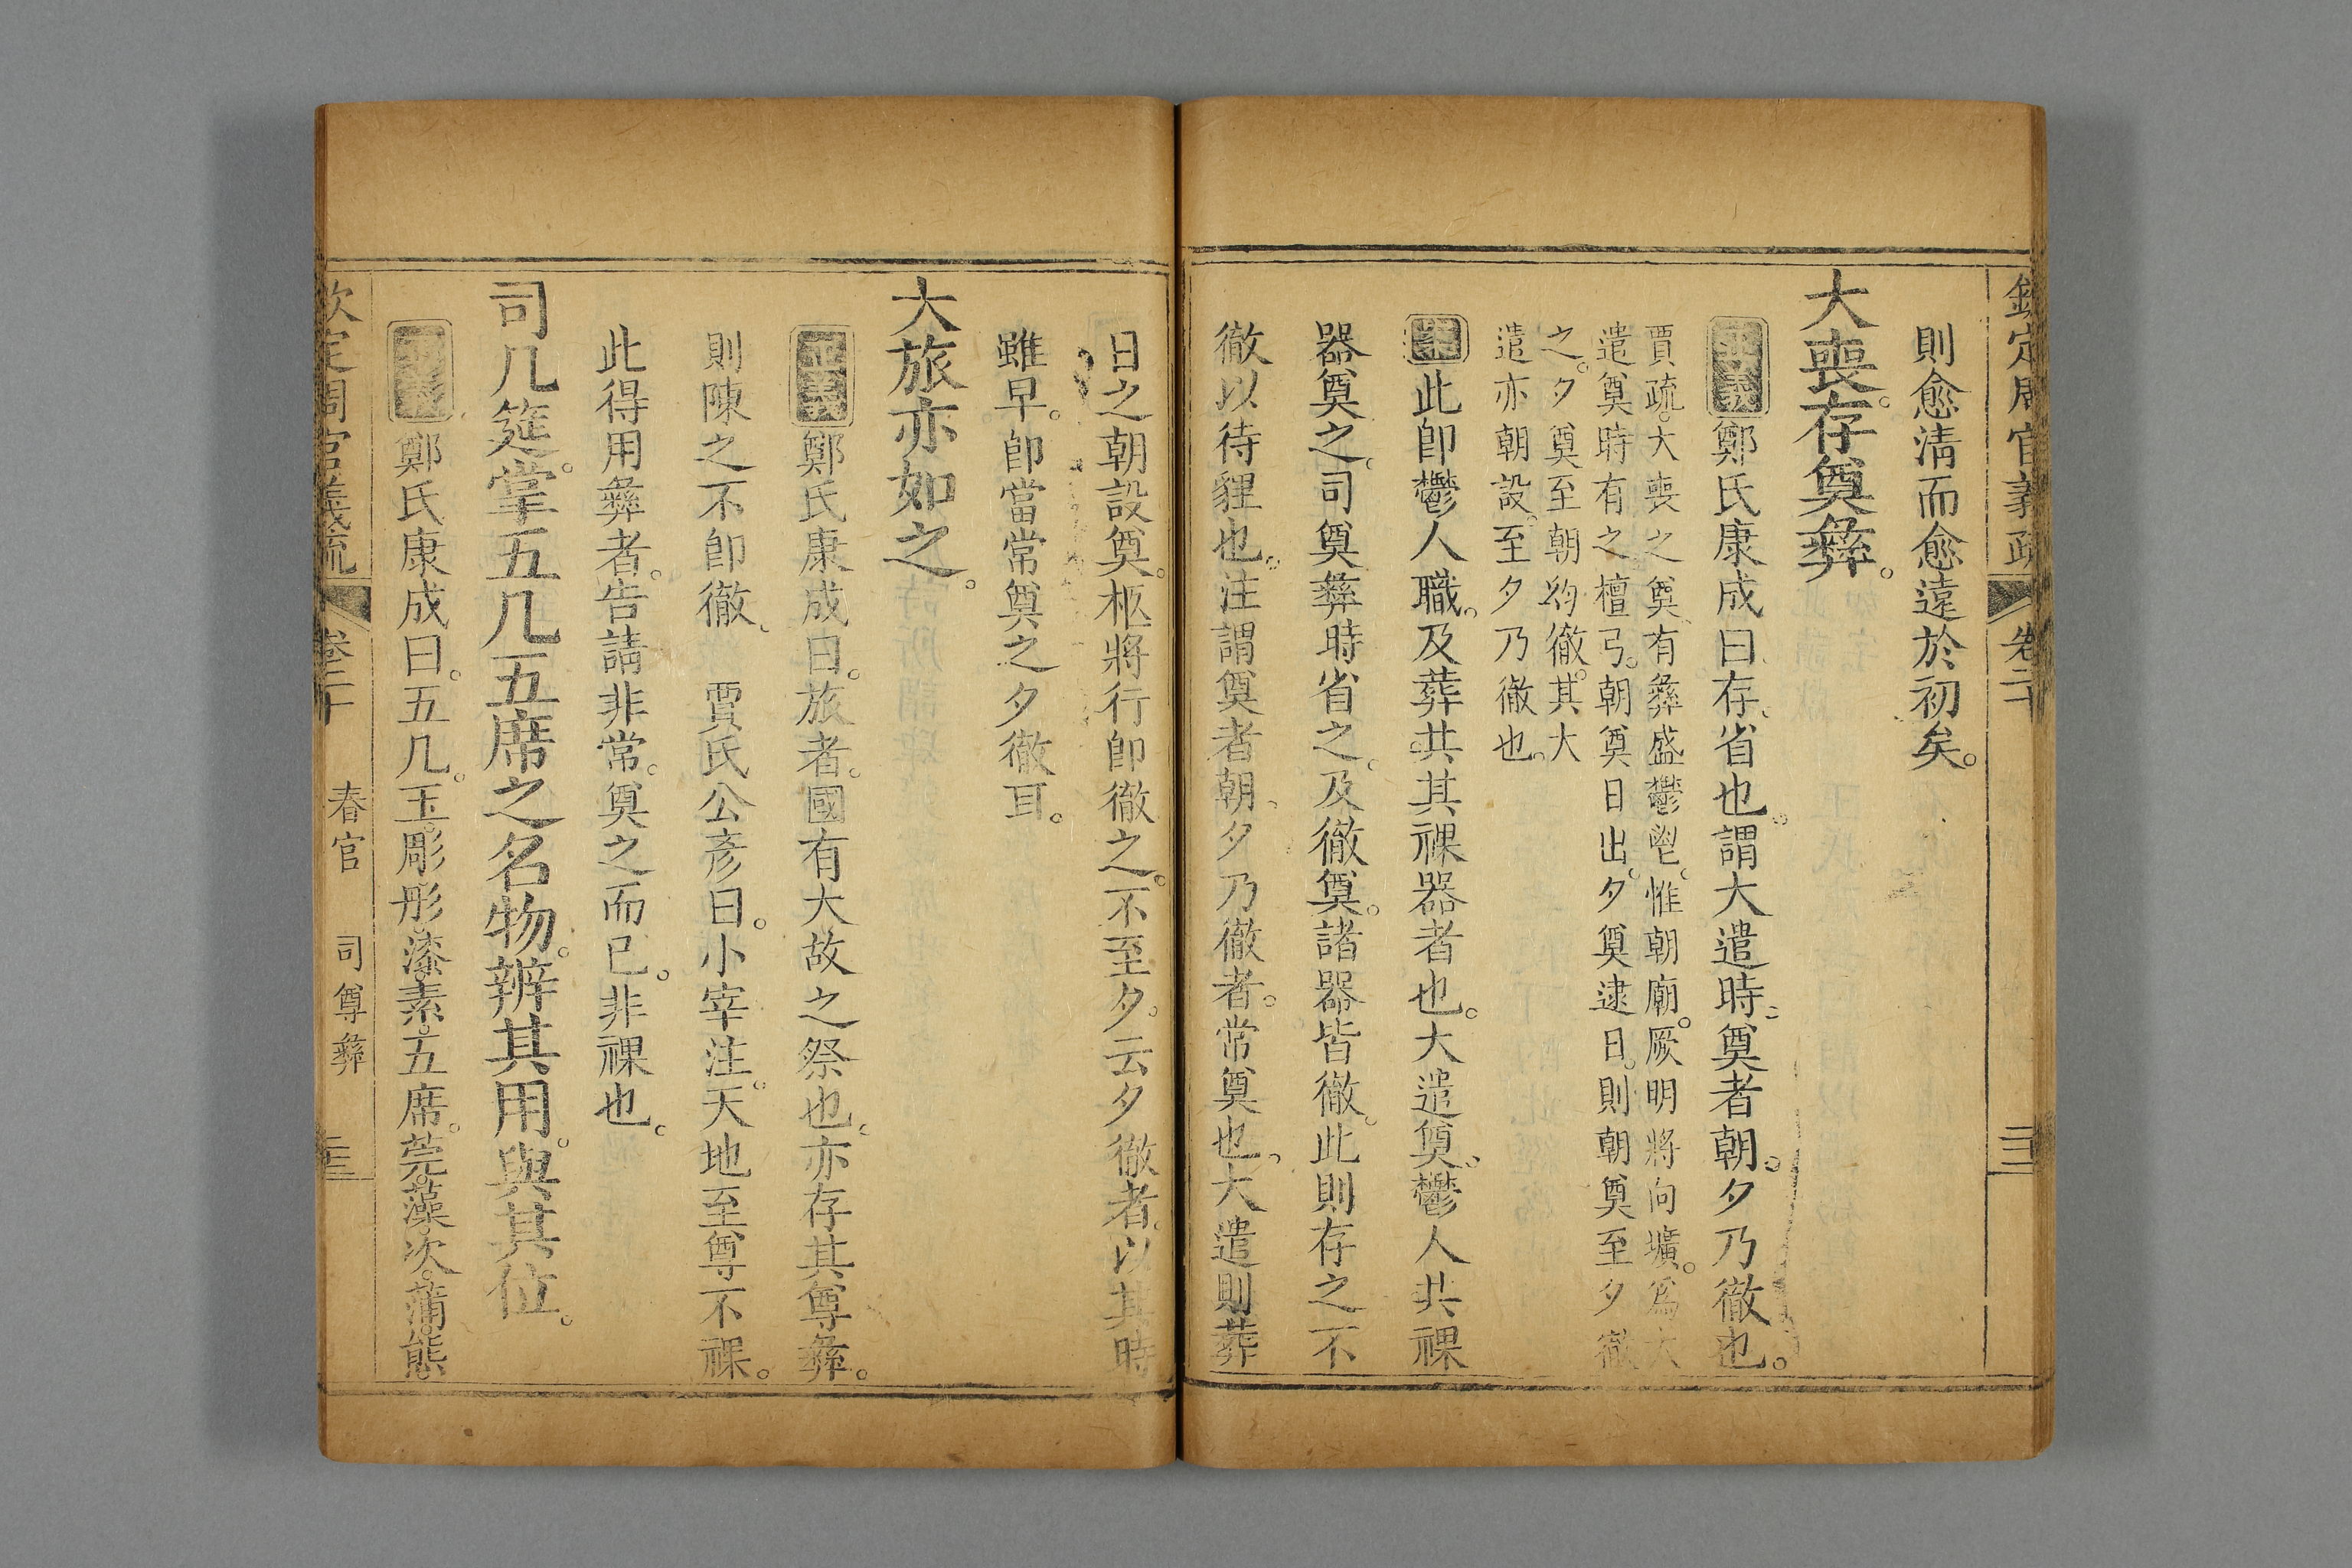 欽定周官義疏 卷二十 三三
則愈淸而愈遠於初矣。
大喪。存奠彝。
正義 鄭氏康成曰。存。省也。謂大遣時。奠者朝。夕乃徹也。
賈疏。大喪之奠。有彝盛鬱鬯。惟朝廟。厥明將向壙。爲大
遣奠時有之。檀弓。朝奠日出。夕奠逮日。則朝奠至夕徹
之。夕奠至朝約徹。其大
遣亦朝設。至夕乃徹也。
案 此卽鬱人職。及葬共其祼器者也。大遣奠。鬱人共祼
器奠之。司奠彝時省之。及徹奠。諸器皆徹。此則存之不
徹以待貍也。注謂奠者朝。夕乃徹者。常奠也。大遣則葬
日之朝設奠。柩將行卽徹之。不至夕。云夕徹者。以其時
雖早。卽當常奠之夕徹耳。
大旅亦如之。
正義 鄭氏康成曰。旅者。國有大故之祭也。亦存其尊彝。
則陳之不卽徹。 賈氏公彥曰。小宰注。天地至尊不祼。
此得用彝者。告請非常。奠之而已。非祼也。
司几筵。掌五几五席之名物。辨其用。與其位。
正義 鄭氏康成曰。五几。玉。彫。彤。漆。素。五席。莞。藻。次。蒲。熊
欽定周官義疏 卷二十 春官 司尊彝 三三